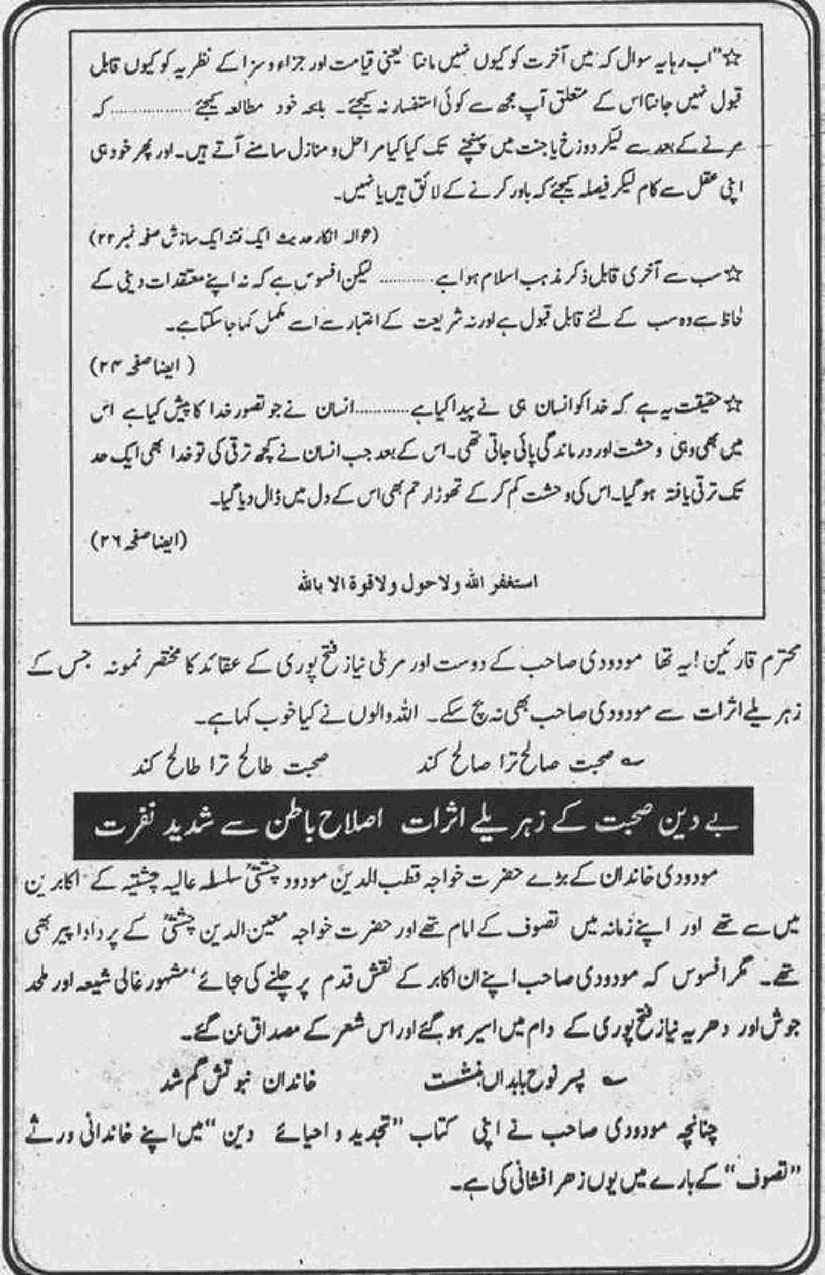 ☆"اب رہا یہ سوال کہ میں آخرت کو کیوں نہیں مانتا یعنی قیامت اور جزاء و سزا کے نظریہ کو کیوں قابل
قبول نہیں جانتا اس کے متعلق آپ مجھ سے کوئی استفسار نہ کیجئے۔ بلکہ خود مطالعہ کیجئے .................. کہ
مرنے کے بعد سے لیکر دوزخ یا جنت میں پہنچنے تک کیا کیا مراحل و منازل سامنے آتے ہیں۔ اور پھر خود ہی
اپنی عقل سے کام لیکر فیصلہ کیجئے کہ باور کرنے کے لائق ہیں یا نہیں۔
(حوالہ انکار حدیث ایک فتنہ ایک سازش صفحہ نمبر ۲۲)
☆ سب سے آخری قابل ذکر مذہب اسلام ہوا ہے ........... لیکن افسوس ہے کہ نہ اپنے معتقدات دینی کے
لحاظ سے وہ سب کے لئے قابل قبول ہے اور نہ شریعت کے اعتبار سے اسے مکمل کہا جا سکتا ہے۔
(ایضا صفحہ ۲۴)
☆ حقیقت یہ ہے کہ خدا کو انسان ہی نے پیدا کیا ہے ........... انسان نے جو تصور خدا کا پیش کیا ہے اس
میں بھی وہی وحشت اور درماندگی پائی جاتی تھی۔ اس کے بعد جب انسان نے کچھ ترقی کی تو خدا بھی ایک حد
تک ترقی یافتہ ہو گیا۔ اس کی وحشت کم کر کے تھوڑا رحم بھی اس کے دل میں ڈال دیا گیا۔
(ایضا صفحہ ۲۶)
استغفر اللہ ولا حول ولا قوۃ الا باللہ
محترم قارئین! یہ تھا مودودی صاحب کے دوست اور مربی نیاز فتح پوری کے عقائد کا مختصر نمونہ جس کے
زہریلے اثرات سے مودودی صاحب بھی نہ بچ سکے۔ اللہ والوں نے کیا خوب کہا ہے۔
؎ صحبت صالح ترا صالح کند صحبت طالح ترا طالح کند
بے دین صحبت کے زہریلے اثرات اصلاح باطن سے شدید نفرت
مودودی خاندان کے بڑے حضرت خواجہ قطب الدین مودود چشتیؒ سلسلہ عالیہ چشتیہ کے اکابرین
میں سے تھے اور اپنے زمانہ میں تصوف کے امام تھے اور حضرت خواجہ معین الدین چشتیؒ کے پردادا پیر بھی
تھے۔ مگر افسوس کہ مودودی صاحب اپنے ان اکابر کے نقش قدم پر چلنے کی بجائے، مشہور غالی شیعہ اور ملحد
جوش اور دھریہ نیاز فتح پوری کے دام میں اسیر ہو گئے اور اس شعر کے مصداق بن گئے۔
؎ پسر نوح بابداں نشست خاندان نبوتش گم شد
چنانچہ مودودی صاحب نے اپنی کتاب "تجدید و احیائے دین" میں اپنے خاندانی ورثے
"تصوف" کے بارے میں یوں زھر افشانی کی ہے۔